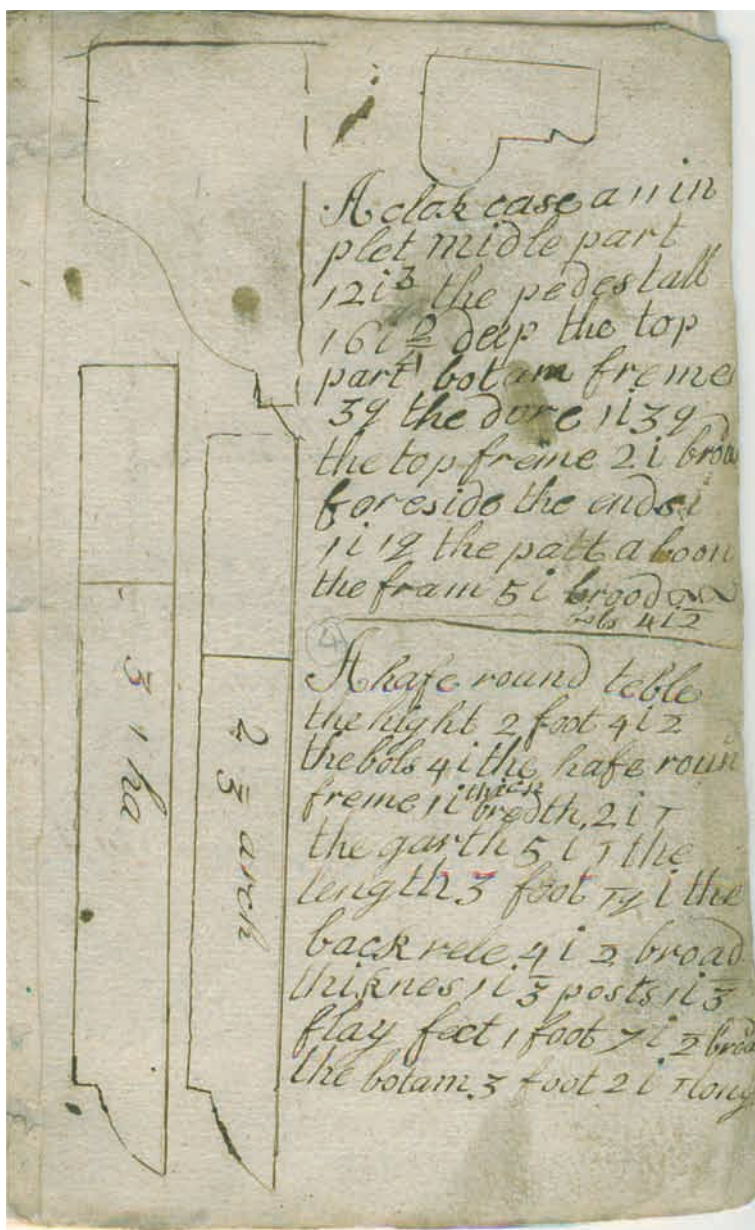 A clok case a 11 in
plet midle part
12 i 3 the pedestall
16 i 2/4 deep the top
part botam freme
3q the dore 1i 3q
the top freme 2 i broa
foreside the ends i
1 i 1q the patt a boon
the fram 5 i brood
bols 4 i 2
4
A hafe round teble
the hight 2 foot 4 i 2
the bols 4 i the hafe roun
thick
freme 1i bredth, 2 i 1
the garth 5 i 1 the
length 3 foot i the
back rele 4 i 2 broad
thiknes 1i 3 posts 1i 3
flay feet 1 foot 7 i 2 broa
the botam 3 foot 2 i 1 long
3 1 ha
2 3 arch